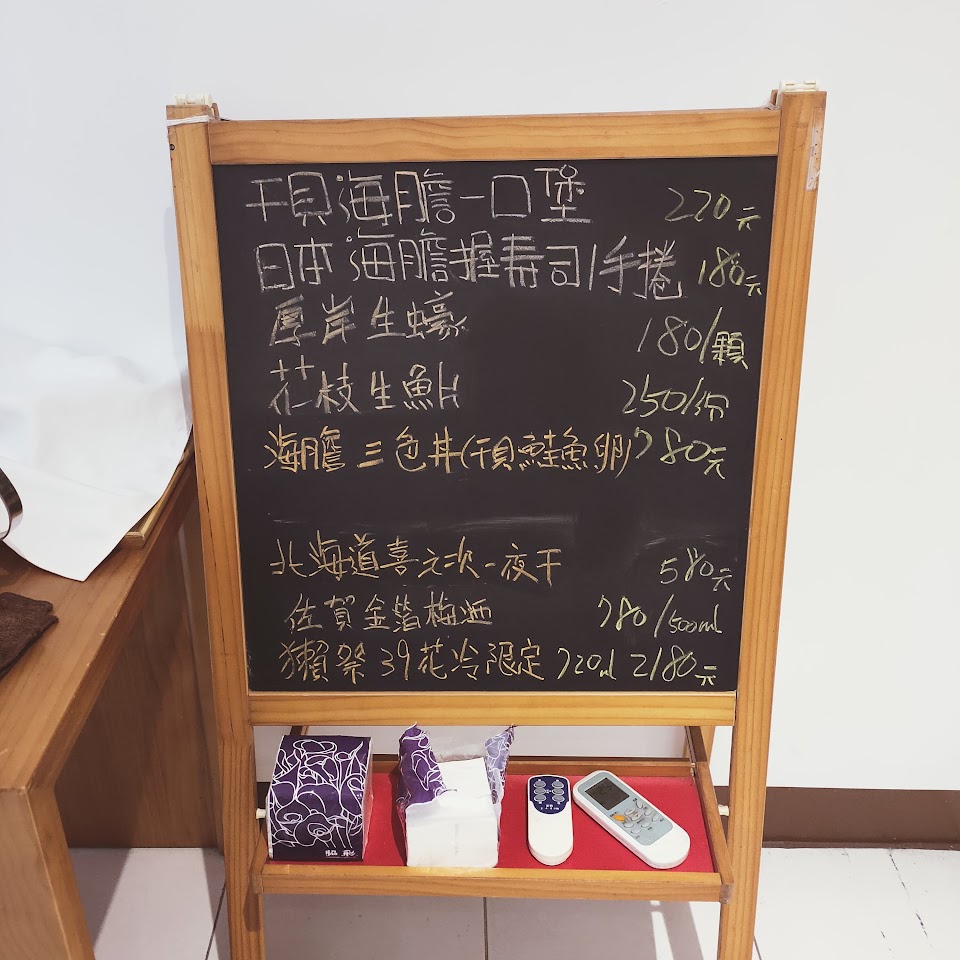 干貝海膽一口堡 220元
日本海膽握壽司/手捲 180元
厚岸生蠔 180/顆
花枝生魚片 250/份
海膽三色丼(干貝鮭魚卵) 780元
北海道喜之次一夜干 580元
佐賀金箔梅酒 780/500ml
獺祭39花冷限定 720ml 2180元